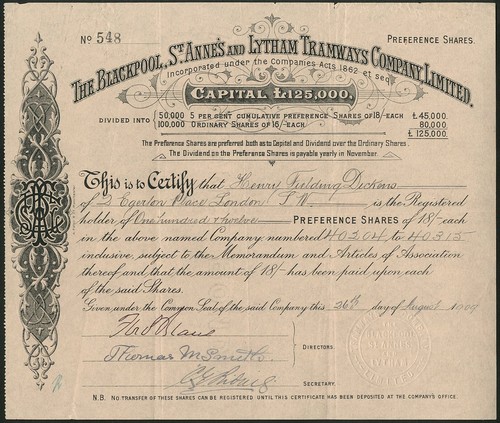 No 548
PREFERENCE SHARES.
THE BLACKPOOL, ST ANNE'S AND LYTHAM TRAMWAYS COMPANY, LIMITED.
Incorporated under the Companies Acts 1862 et seq
CAPITAL £125,000.
DIVIDED INTO
50,000 5 PER CENT CUMULATIVE PREFERENCE SHARES OF 18/- EACH £45,000
100,000 ORDINARY SHARES OF 16/- EACH 80,000
£125,000.
The Preference Shares are preferred both as to Capital and Dividend over the Ordinary Shares.
The Dividend on the Preference Shares is payable yearly in November.
This is to Certify that Henry Fielding Dickens
of 2 Egerton Place London S.W. is the Registered
holder of One hundred & twelve PREFERENCE SHARES of 18/- each
in the above named Company numbered 40204 to 40315
inclusive, subject to the Memorandum and Articles of Association
thereof and that the amount of 18/- has been paid upon each
of the said Shares.
Given under the Common Seal of the said Company this 26th day of August 1909
Thomas M Smith
DIRECTORS.
SECRETARY.
N.B. NO TRANSFER OF THESE SHARES CAN BE REGISTERED UNTIL THIS CERTIFICATE HAS BEEN DEPOSITED AT THE COMPANY'S OFFICE.